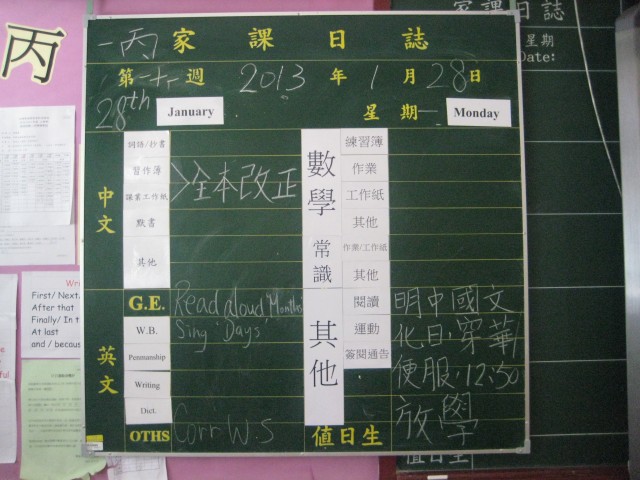 丙
一丙 家課日誌
第二十一週 2013年1月28日
28th January 星期一 Monday
中文
詞語/抄書
習作簿
課業工作紙
默書
其他
>全本改正
英文
G.E. Read aloud "Months"
W.B. Sing "Days"
Penmanship
Writing
Dict.
OTHS Corr W.S
數學
練習簿
作業
工作紙
其他
常識
作業/工作紙
其他
其他
閱讀
運動
簽閱通告
明中國文
化日,穿華
便服.12:50
放學
值日生
家課日誌
星期
Date:
值日生
First/ Next/
After that
Finally/ In t
At last
and / becaus